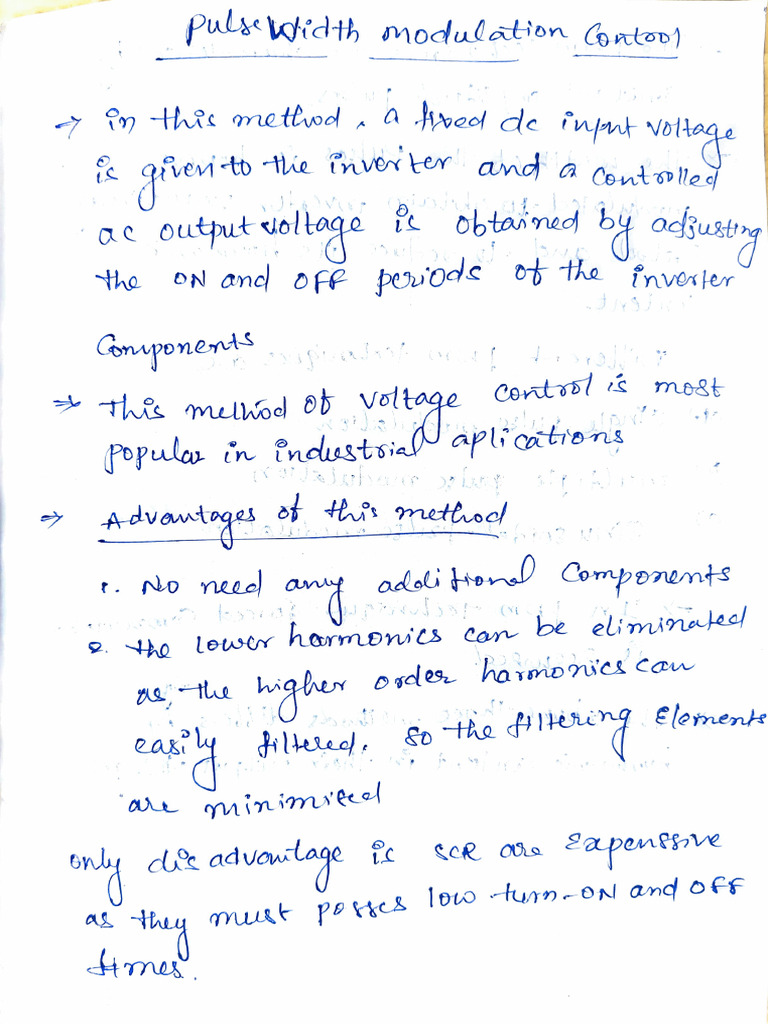 Pulse Width modulation Control
→ in this method, a fixed dc input voltage
is given to the inverter and a controlled
ac output voltage is obtained by adjusting
the ON and OFF periods of the inverter
Components
⇒ This method of voltage control is most
popular in industrial aplications
⇒ Advantages of this method
1. No need any additional Components
2. the lower harmonics can be eliminated
as, the higher order harmonics can
easily filtered. So the filtering Elements
are minimized
only disadvantage is SCR are Expenssive
as they must posses low turn-ON and OFF
times.